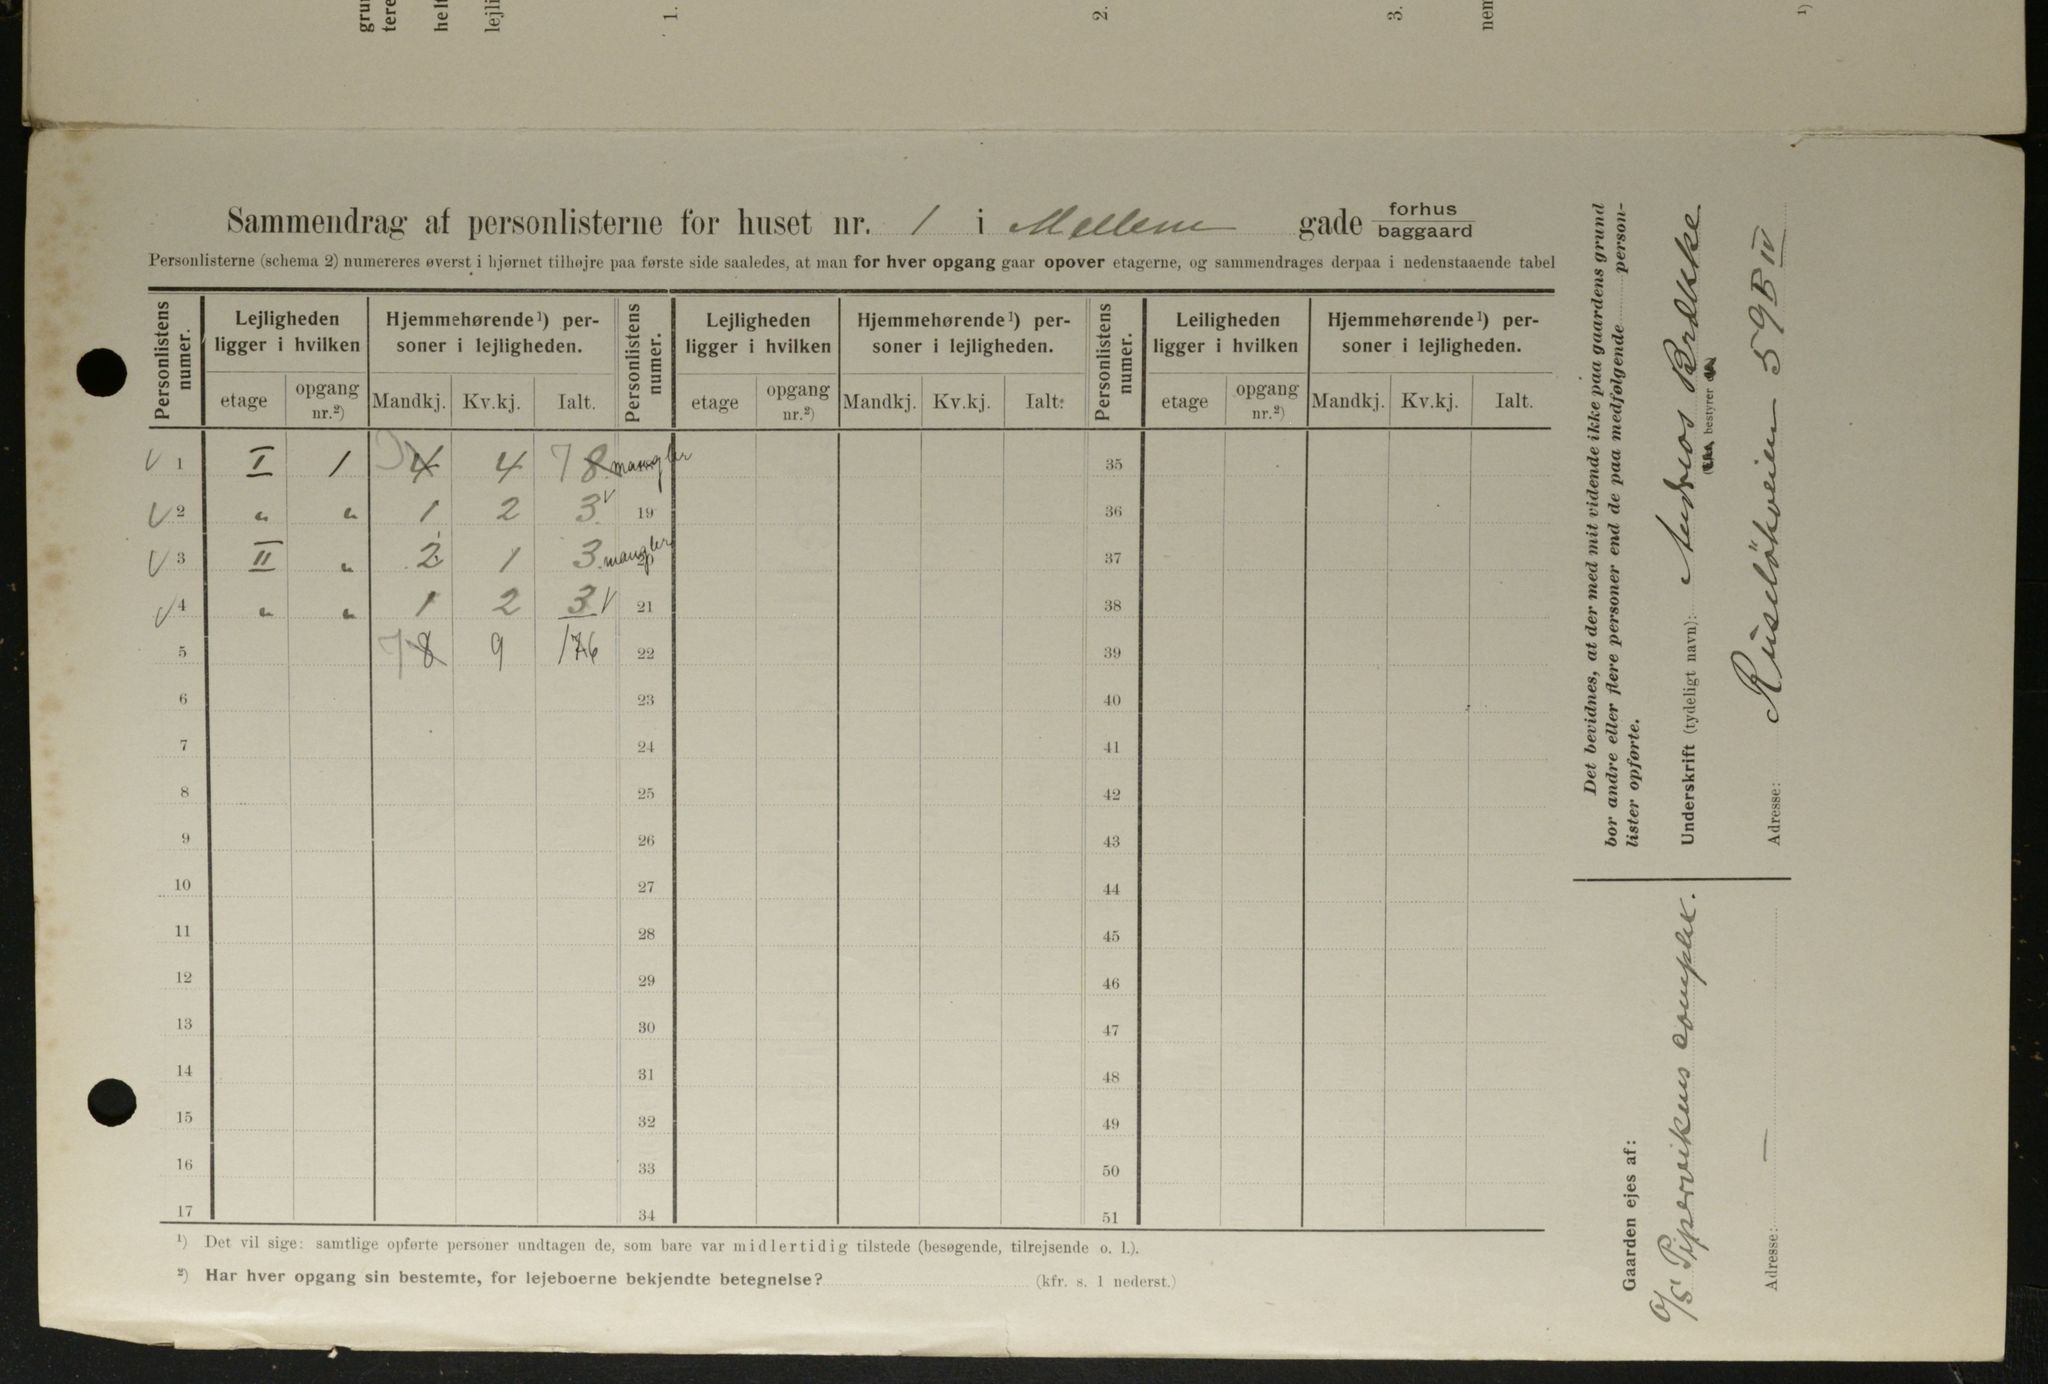 grun
tere
helt
lejli
1.
2.
3.
nem
1)
Sammendrag af personlisterne for huset nr. 1 i Mellem gade forhus
baggaard
Personlisterne (schema 2) numereres øverst i hjørnet tilhøjre paa første side saaledes, at man for hver opgang gaar opover etagerne, og sammendrages derpaa i nedenstaaende tabel
Personlistens numer. Lejligheden ligger i hvilken Hjemmehørende¹) personer i lejligheden. Personlistens numer. Lejligheden ligger i hvilken Hjemmehørende¹) personer i lejligheden. Personlistens numer. Leiligheden ligger i hvilken Hjemmehørende¹) personer i lejligheden.
etage opgang nr.²) Mandkj. Kv.kj. Ialt. etage opgang nr.²) Mandkj. Kv.kj. Ialt. etage opgang nr.²) Mandkj. Kv.kj. Ialt.
V 1 I 1 3 4 4 7 8 mangler 35
V 2 " " 1 2 3 V 19 36
V 3 II " 2 1 3 mangler 20 37
V 4 " " 1 2 3 V 21 38
5 7 8 9 17 6 22 39
6 23 40
7 24 41
8 25 42
9 26 43
10 27 44
11 28 45
12 29 46
13 30 47
14 31 48
15 32 49
16 33 50
17 34 51
¹) Det vil sige: samtlige opførte personer undtagen de, som bare var midlertidig tilstede (besøgende, tilrejsende o. l.).
²) Har hver opgang sin bestemte, for lejeboerne bekjendte betegnelse? (kfr. s. 1 nederst.)
Det bevidnes, at der med mit vidende ikke paa gaardens grund
bor andre eller flere personer end de paa medfølgende person-
lister opførte.
Underskrift (tydeligt navn): Andreas Brække
bestyrer
Adresse: Ruselökveien 59 B IV
Gaarden ejes af:
O/S Pipervikens compl.
Adresse: —